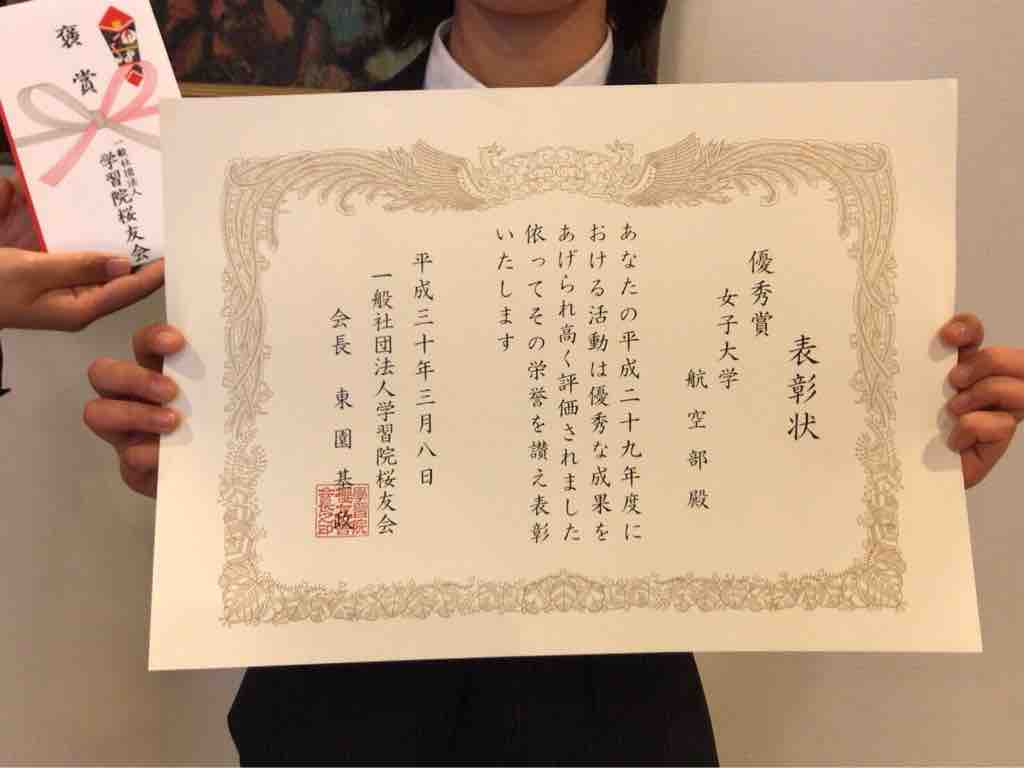 表彰状
優秀賞
女子大学
航空部殿
あなたの平成二十九年度に
おける活動は優秀な成果を
あげられ高く評価されました
依ってその栄誉を讃え表彰
いたします
平成三十年三月八日
一般社団法人学習院桜友会
会長 東園基政
褒賞
一般社団法人
学習院桜友会